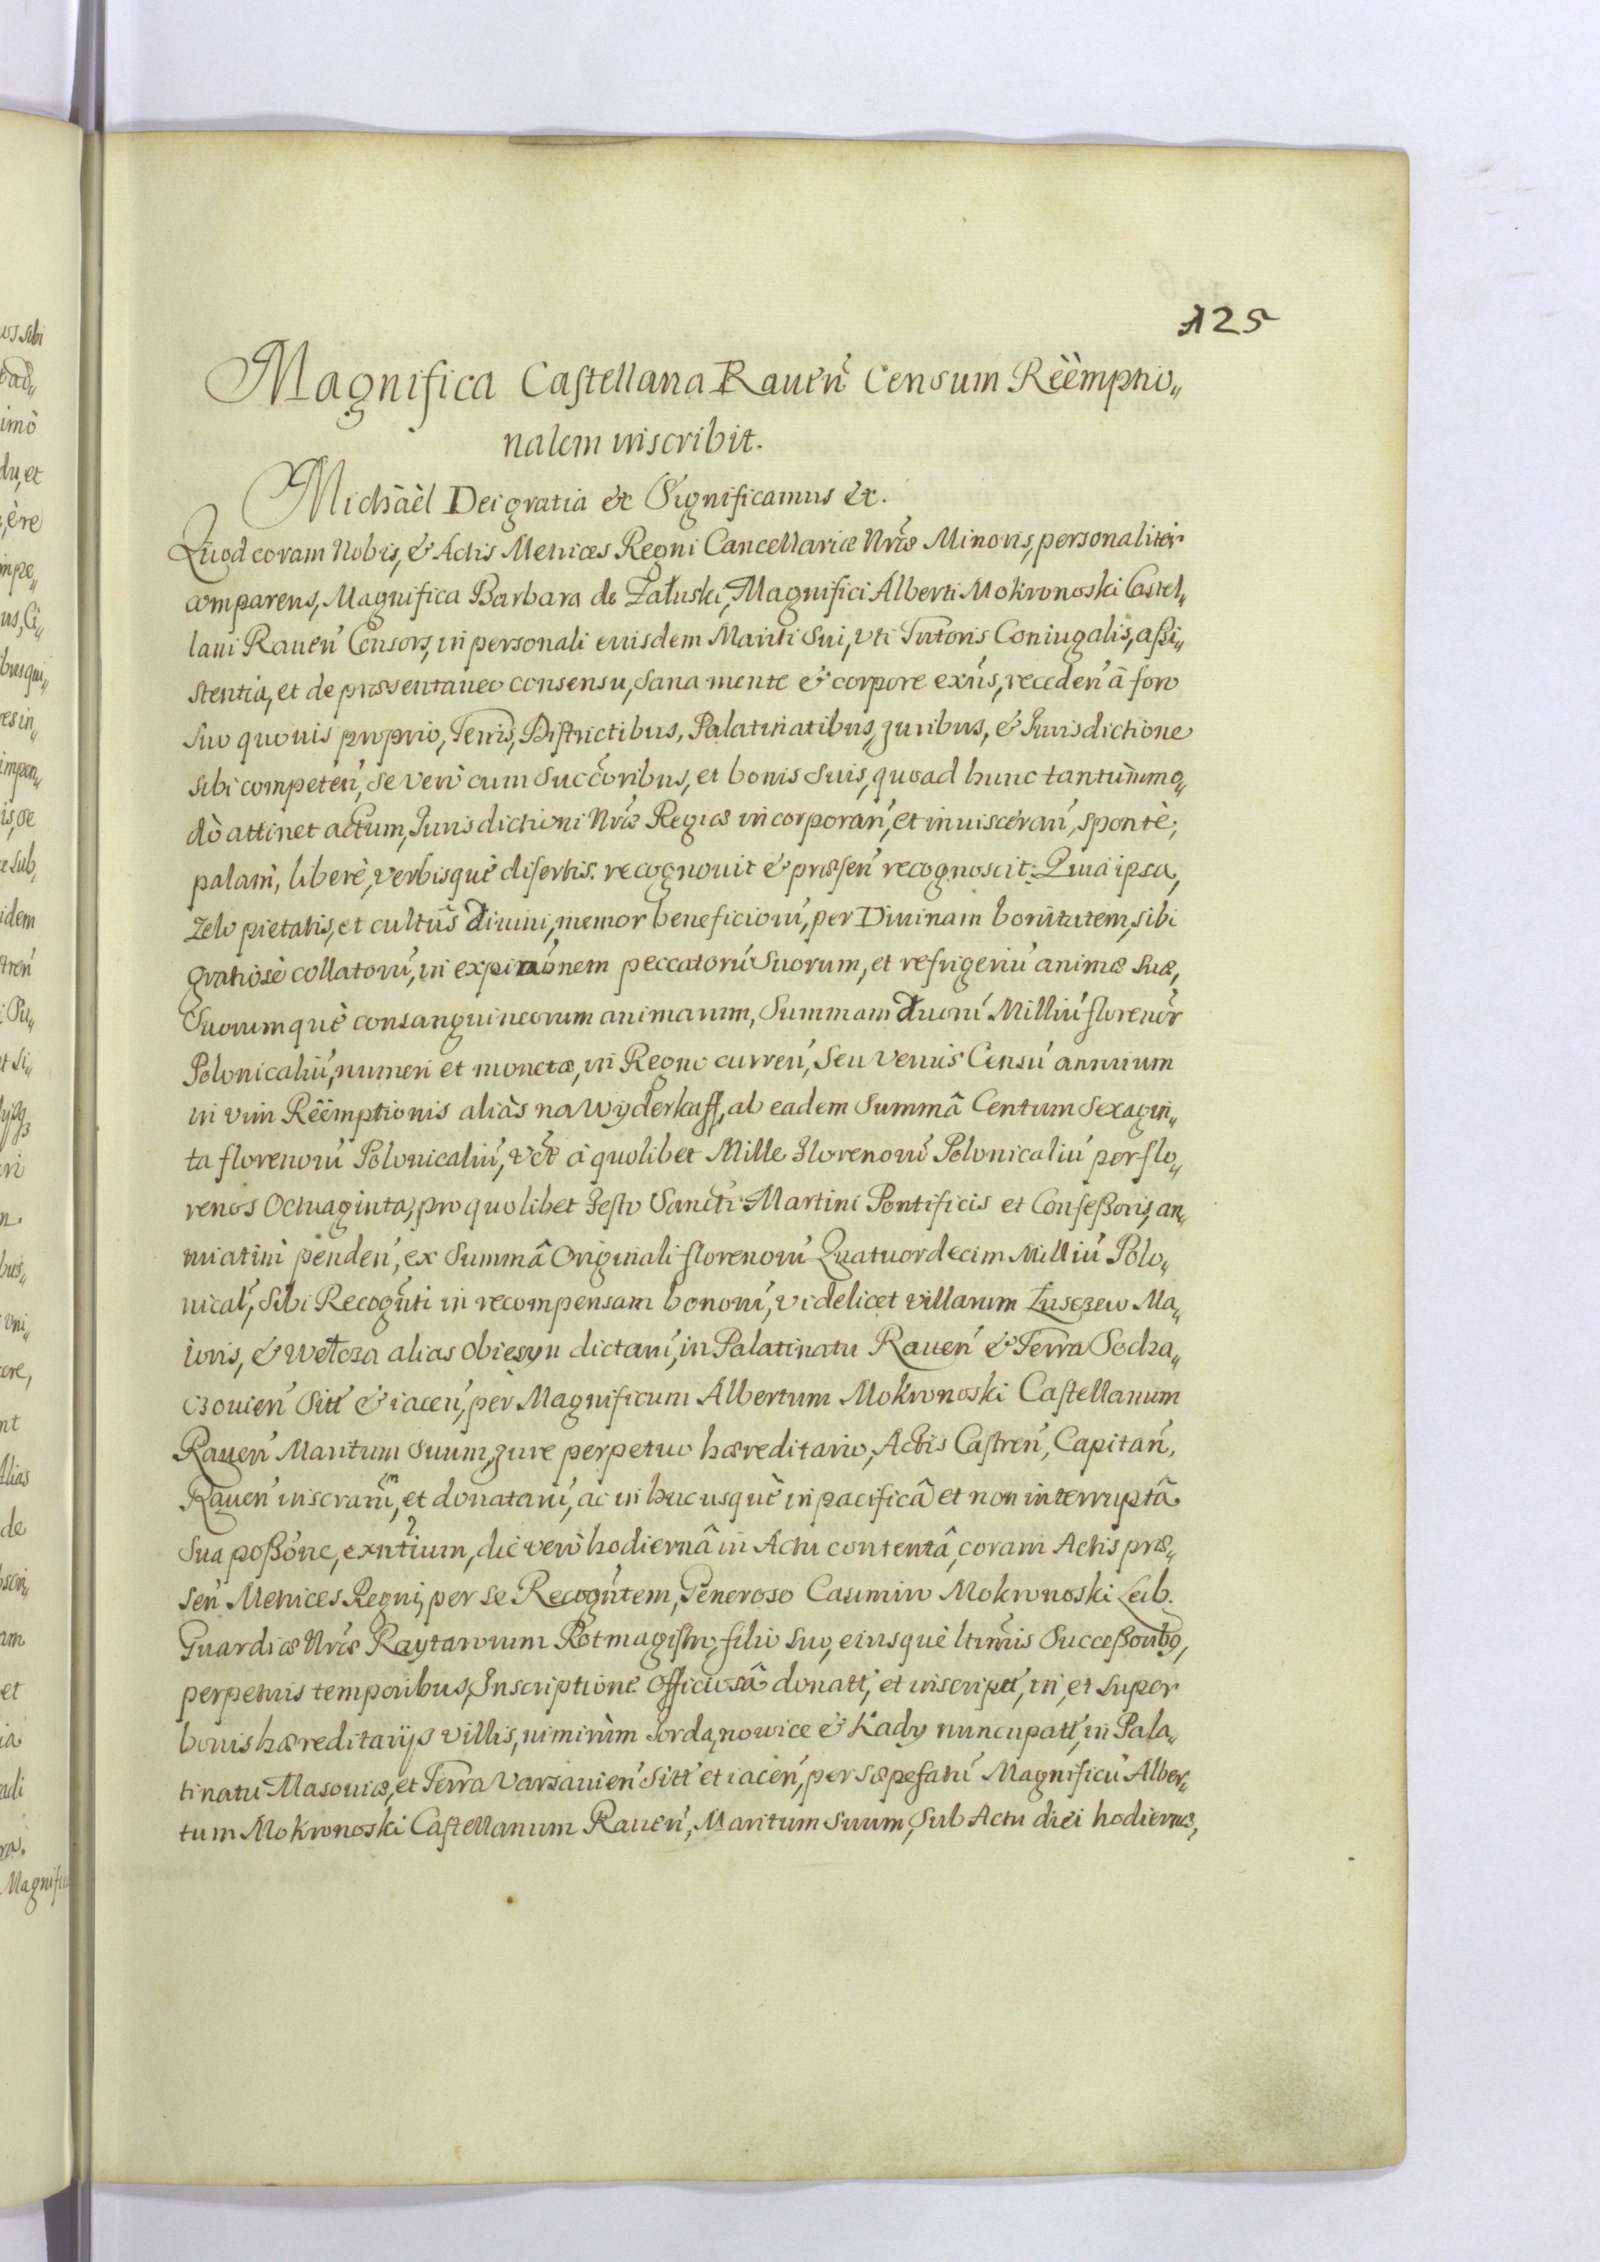 125
Magnifica Castellana Rauen̄ Censum Rëèmptio„
nalem inscribit.
Michàèl Dei gratia &c Significamus &c.
Quod coram Nobis, & Actis Metrices Regni Cancellariæ Nr̄æ Minoris, personaliter
comparens, Magnifica Barbara de Załuski, Magnifici Alberti Mokronoski Castel„
lani Rauen̄ Consors, in personali eiusdem Mariti Sui, vti Tutoris Coniugalis, assi„
stentia, et de præsentaneo consensu, Sana mente & corpore exn̄s, receden̄ à foro
Suo quouis proprio, Terris, Districtibus, Palatinatibus, Juribus, & Jurisdictione
sibi competen̄, Se verò cum Succ̄oribus, et bonis Suis, quoad hunc tantùmmo„
dò attinet actum, Jurisdictioni Nr̄æ Regiæ incorporan̄, et inuisceran̄, spontè,
palàm, liberè, verbisquè disertis recognouit & præsen̄ recognoscit: Quia ipsa,
zelo pietatis, et cultûs Diuini, memor beneficioru̅, per Diuinam bonitatem, sibi
gratiosè collatoru̅, in expiao̅nem peccatoru̅ Suorum, et refrigeriu̅ animæ Suæ,
Suorumquè consanguineorum animarum, Summam Duoru̅ Milliu̅ florenor̄
Polonicaliu̅, numeri et monetæ, in Regno curren̄, Seu verius Censu̅ annuum
in vim Rëëmptionis aliàs na Wyderkaff, ab eadem Summâ Centum Sexagin„
ta florenoru̅ Polonicaliu̅, vc̄t à quolibet Mille Florenoru̅ Polonicaliu̅ per flo„
renos Octuaginta, pro quolibet Festo Sancti Martini Pontificis et Confessoris, an„
nuatim penden̄, ex Summâ Originali florenoru̅ Quatuordecim Milliu̅ Polo„
nical̄, Sibi Recogn̄ti in recompensam bonoru̅, videlicet villarum Łusczew Ma„
ioris, & Wełcza alias Obiesyn dictaru̅, in Palatinatu Rauen̄ & Terra Socha„
czouien̄ Sitt̄ & iacen̄, per Magnificum Albertum Mokronoski Castellanum
Rauen̄ Maritum Suum, Jure perpetuo hæreditario, Actis Castren̄, Capitan̄,
Rauen̄ inscrarum̄, et donataru̅, ac in hucusquè in pacificâ et non interruptâ
Sua posso̅ne, exn̄tium, die verò hodiernâ in Actu contentâ, coram Actis præ„
sen̄ Metrices Regni, per se Recogn̄tem, Generoso Casimiro Mokronoski Leib.
Guardiæ Nr̄æ Raytarorum Rotmagistro, filio Suo, eiusquè ltimis Successoribus,
perpetuis temporibus, Inscriptione Officiosâ donatt̄, et inscriptt̄, in, et super
bonis hæreditarijs villis, nimirùm Jordanowice & Kady nuncupatt̄, in Pala„
tinatu Masouiæ, et Terra Varsauien̄ Sitt̄ et iacen̄, per sæpefatu̅ Magnificu̅ Alber„
tum Mokronoski Castellanum Rauen̄, Maritum Suum, Sub Actu diei hodiernæ,